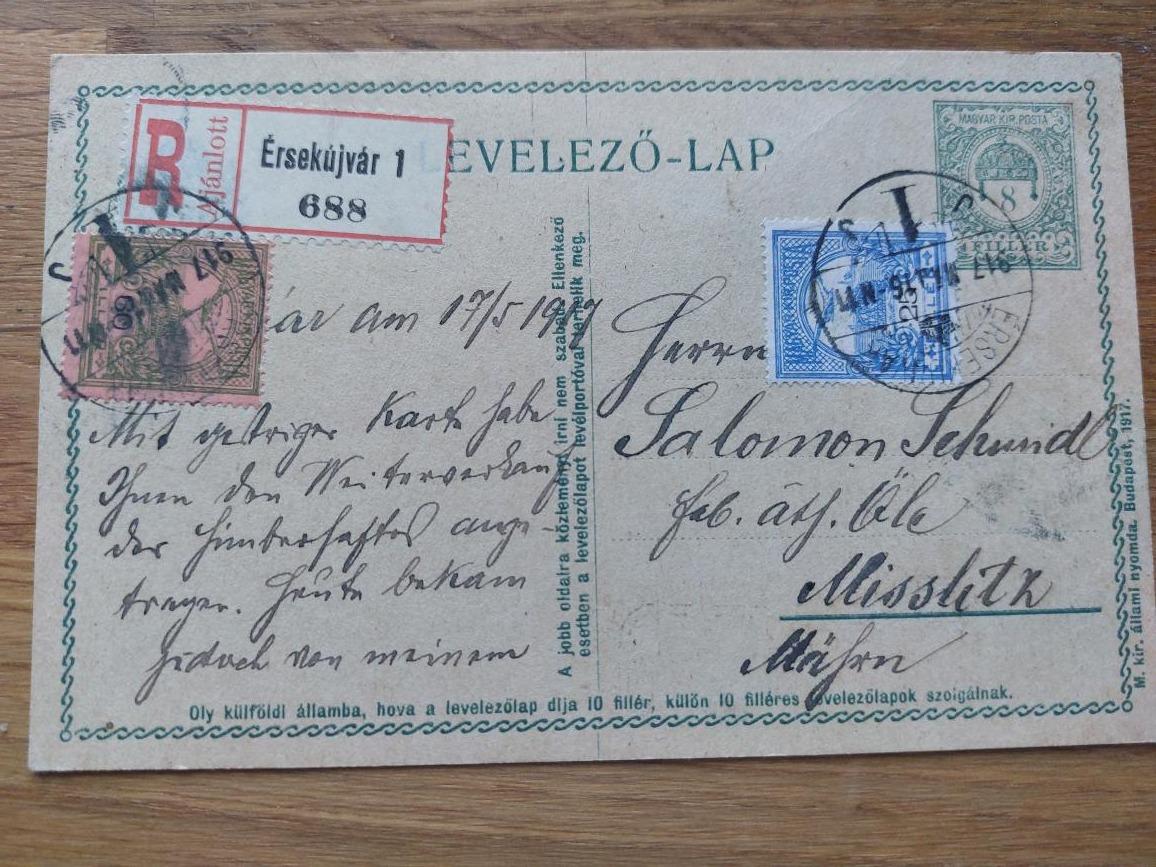 R
Ajánlott
Érsekújvár 1
688
LEVELEZŐ-LAP
MAGYAR KIR. POSTA
8
FILLÉR
25
60
917 MÁJ. 16
ár am 17/5 1917
Mit gestriger Karte habe
Ihnen den Weiterverkauf
des Himbersaftes ange-
tragen. Heute bekam
jedoch von meinem
A jobb oldalra közleményt írni nem szabad. Ellenkező
esetben a levelezőlapot levélportóval terhelik meg.
Herrn
Salomon Schmidl
fab. äth. Öle
Misslitz
Mähren
Oly külföldi államba, hova a levelezőlap díja 10 fillér, külön 10 filléres levelezőlapok szolgálnak.
M. kir. állami nyomda. Budapest, 1917.